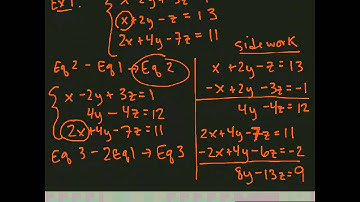 Ex 1.
x - 2y + 3z = 1
x + 2y - z = 13
2x + 4y - 7z = 11
Eq 2 - Eq 1 → Eq 2
x - 2y + 3z = 1
4y - 4z = 12
2x + 4y - 7z = 11
Eq 3 - 2Eq1 → Eq 3
sidework
x + 2y - z = 13
-x + 2y - 3z = -1
4y - 4z = 12
2x + 4y - 7z = 11
-2x + 4y - 6z = -2
8y - 13z = 9